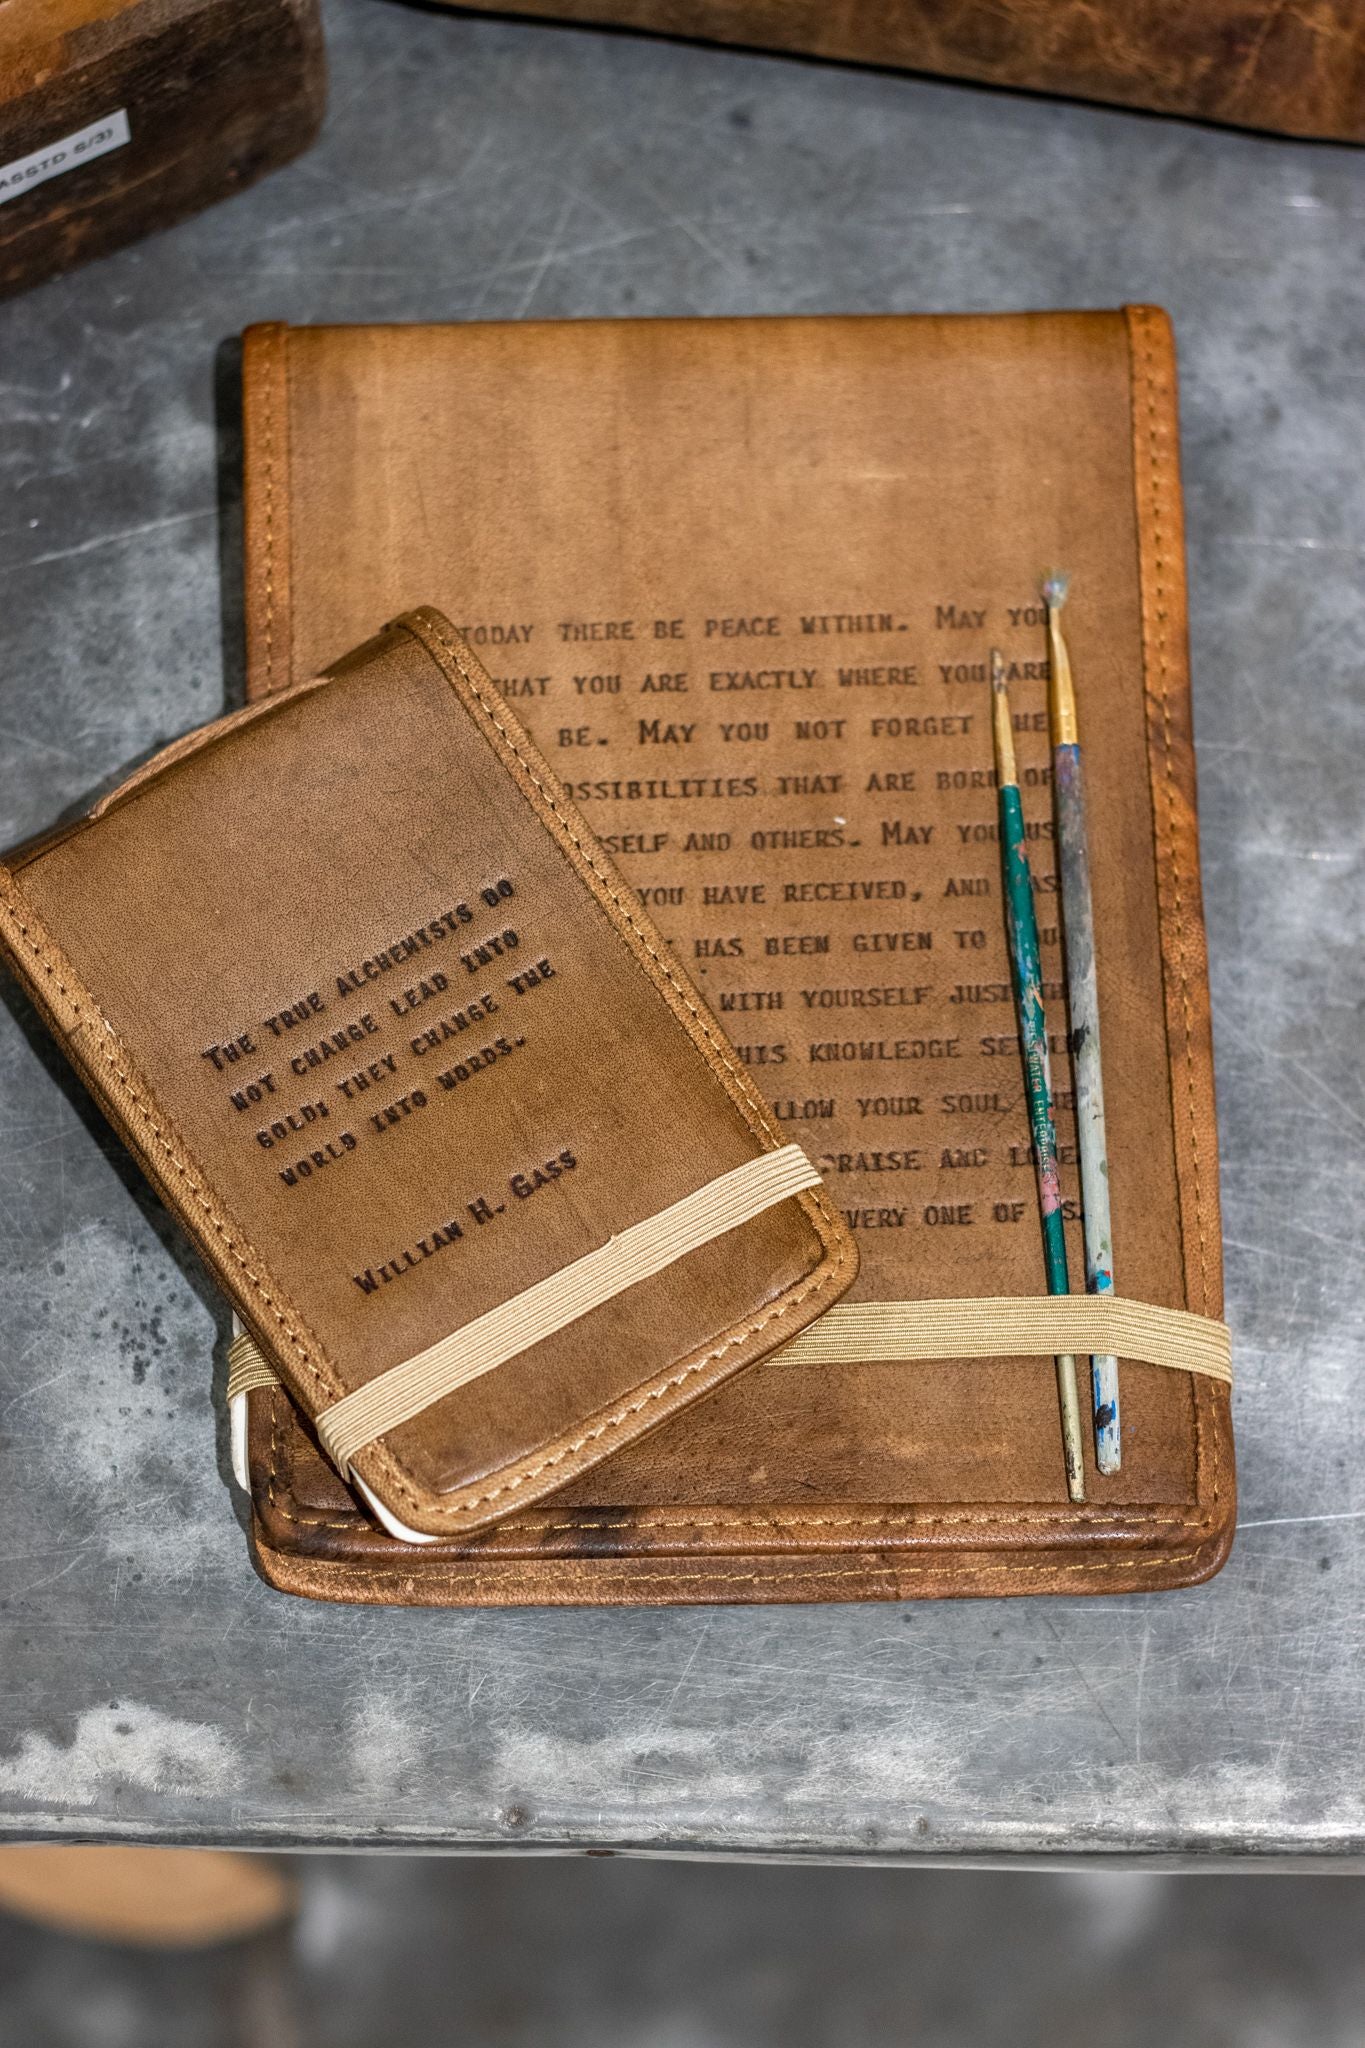 ASSTD S/3)
TODAY THERE BE PEACE WITHIN. MAY YOU
THAT YOU ARE EXACTLY WHERE YOU ARE
BE. MAY YOU NOT FORGET THE
POSSIBILITIES THAT ARE BORN OF
AND OTHERS. MAY YOU USE
YOU HAVE RECEIVED, AND PASS
HAS BEEN GIVEN TO YOU.
WITH YOURSELF JUST THE
THIS KNOWLEDGE SETTLE
ALLOW YOUR SOUL THE
PRAISE AND LOVE.
EVERY ONE OF US.
THE TRUE ALCHEMISTS DO
NOT CHANGE LEAD INTO
GOLD; THEY CHANGE THE
WORLD INTO WORDS.
WILLIAM H. GASS
BESTWATER ENTERPRISES